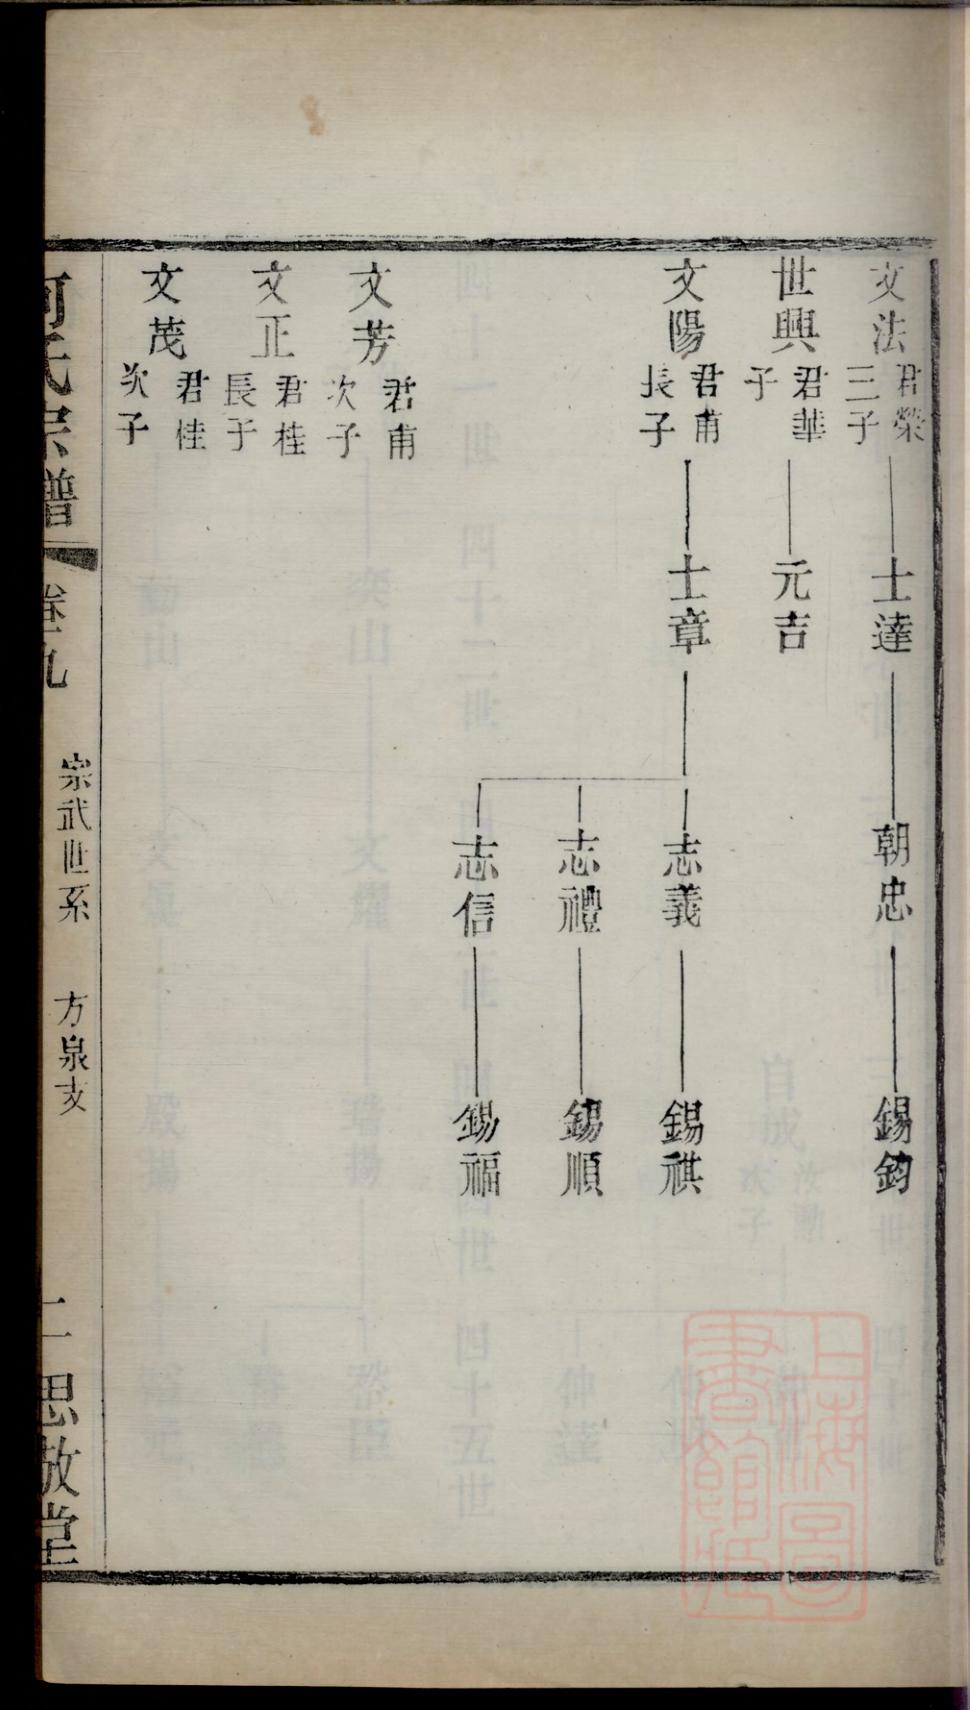 文法 君榮三子 士達 朝忠 錫鈞
世興 君華子 元吉
文陽 君甫長子 士章 志義 錫祺
志禮 錫順
志信 錫福
文芳 君甫次子
文正 君桂長子
文茂 君桂次子
何氏宗譜 卷九 宗武世系 方泉支 二 思敬堂
上海圖書館藏